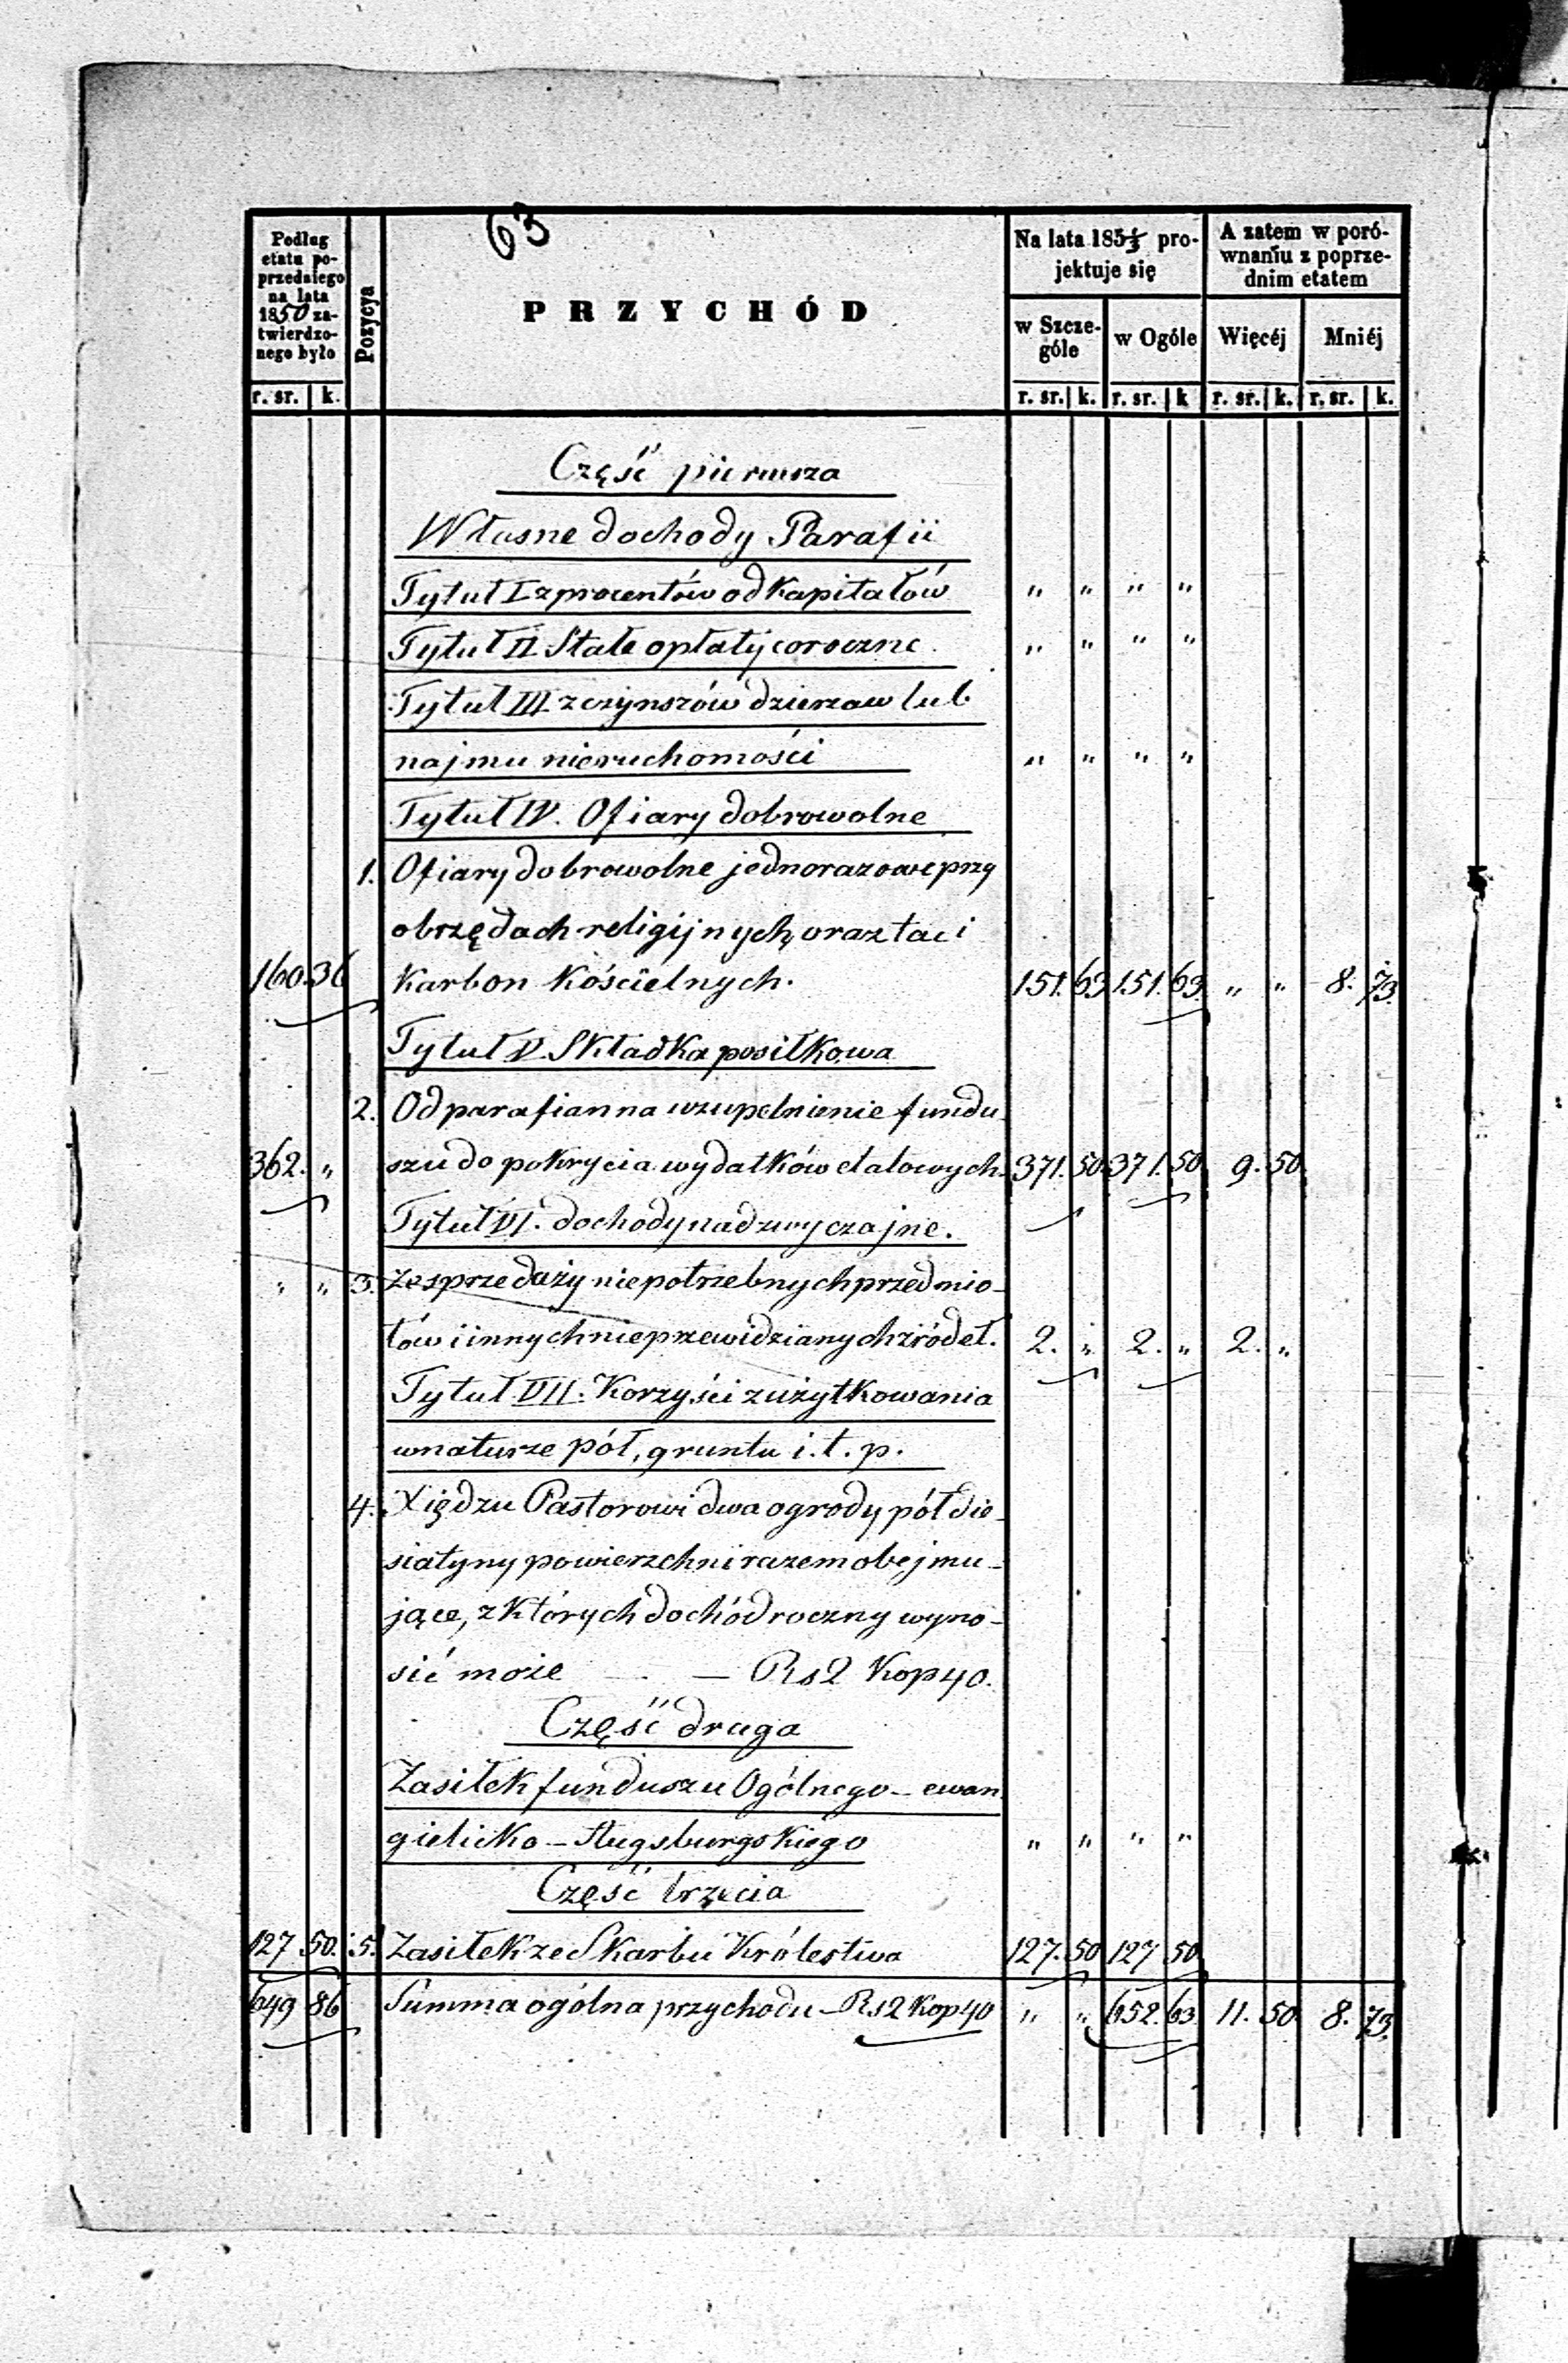 63
Podług etatu poprzedniego na lata 1850 zatwierdzonego było
Pozycya
PRZYCHÓD
Na lata 185 projektuje się
A zatem w porównaniu z poprzednim etatem
w Szczególe
w Ogóle
Więcéj
Mniéj
r. sr. k. r. sr. k. r. sr. k r. sr. k. r. sr. k.
Część pierwsza
Własne dochody Parafii
Tytuł I z procentów od Kapitałów " " " "
Tytuł II Stałe opłaty coroczne. " " " "
Tytuł III z czynszów dzierzaw lub
najmu nieruchomości " " " "
Tytuł IV. Ofiary dobrowolne
1. Ofiary dobrowolne jednorazowe przy
obrzędach religijnych, oraz tac i
160. 36 Karbon Kościelnych. 151. 63 151. 63. " " 8. 73.
Tytuł V. Składka posiłkowa
2. Od parafian na uzupełnienie fundu
362. " szu do pokrycia wydatków etatowych. 371. 50 371. 50 9. 50.
Tytuł VI. dochody nadzwyczajne.
" " 3. Ze sprzedaży niepotrzebnych przedmio-
tów i innych nieprzewidzianych źródeł. 2. " 2. " 2. "
Tytuł VII. Korzyści z użytkowania
w naturze pół, gruntu i. t. p.
4. Xiędzu Pastorowi dwa ogrody pół die-
siatyny powierzchni razem obejmu-
jące, z których dochód roczny wyno-
sić może — Rs 2 Kop 40.
Część druga
Zasiłek funduszu Ogólnego - ewan
gielicko - Augsburgskiego " " " "
Część trzecia
127 50. 5. Zasiłek ze Skarbu Królestwa 127. 50 127 50
649 86 Summa ogólna przychodu - Rs 2 Kop 40 " " 652. 63. 11. 50. 8. 73.